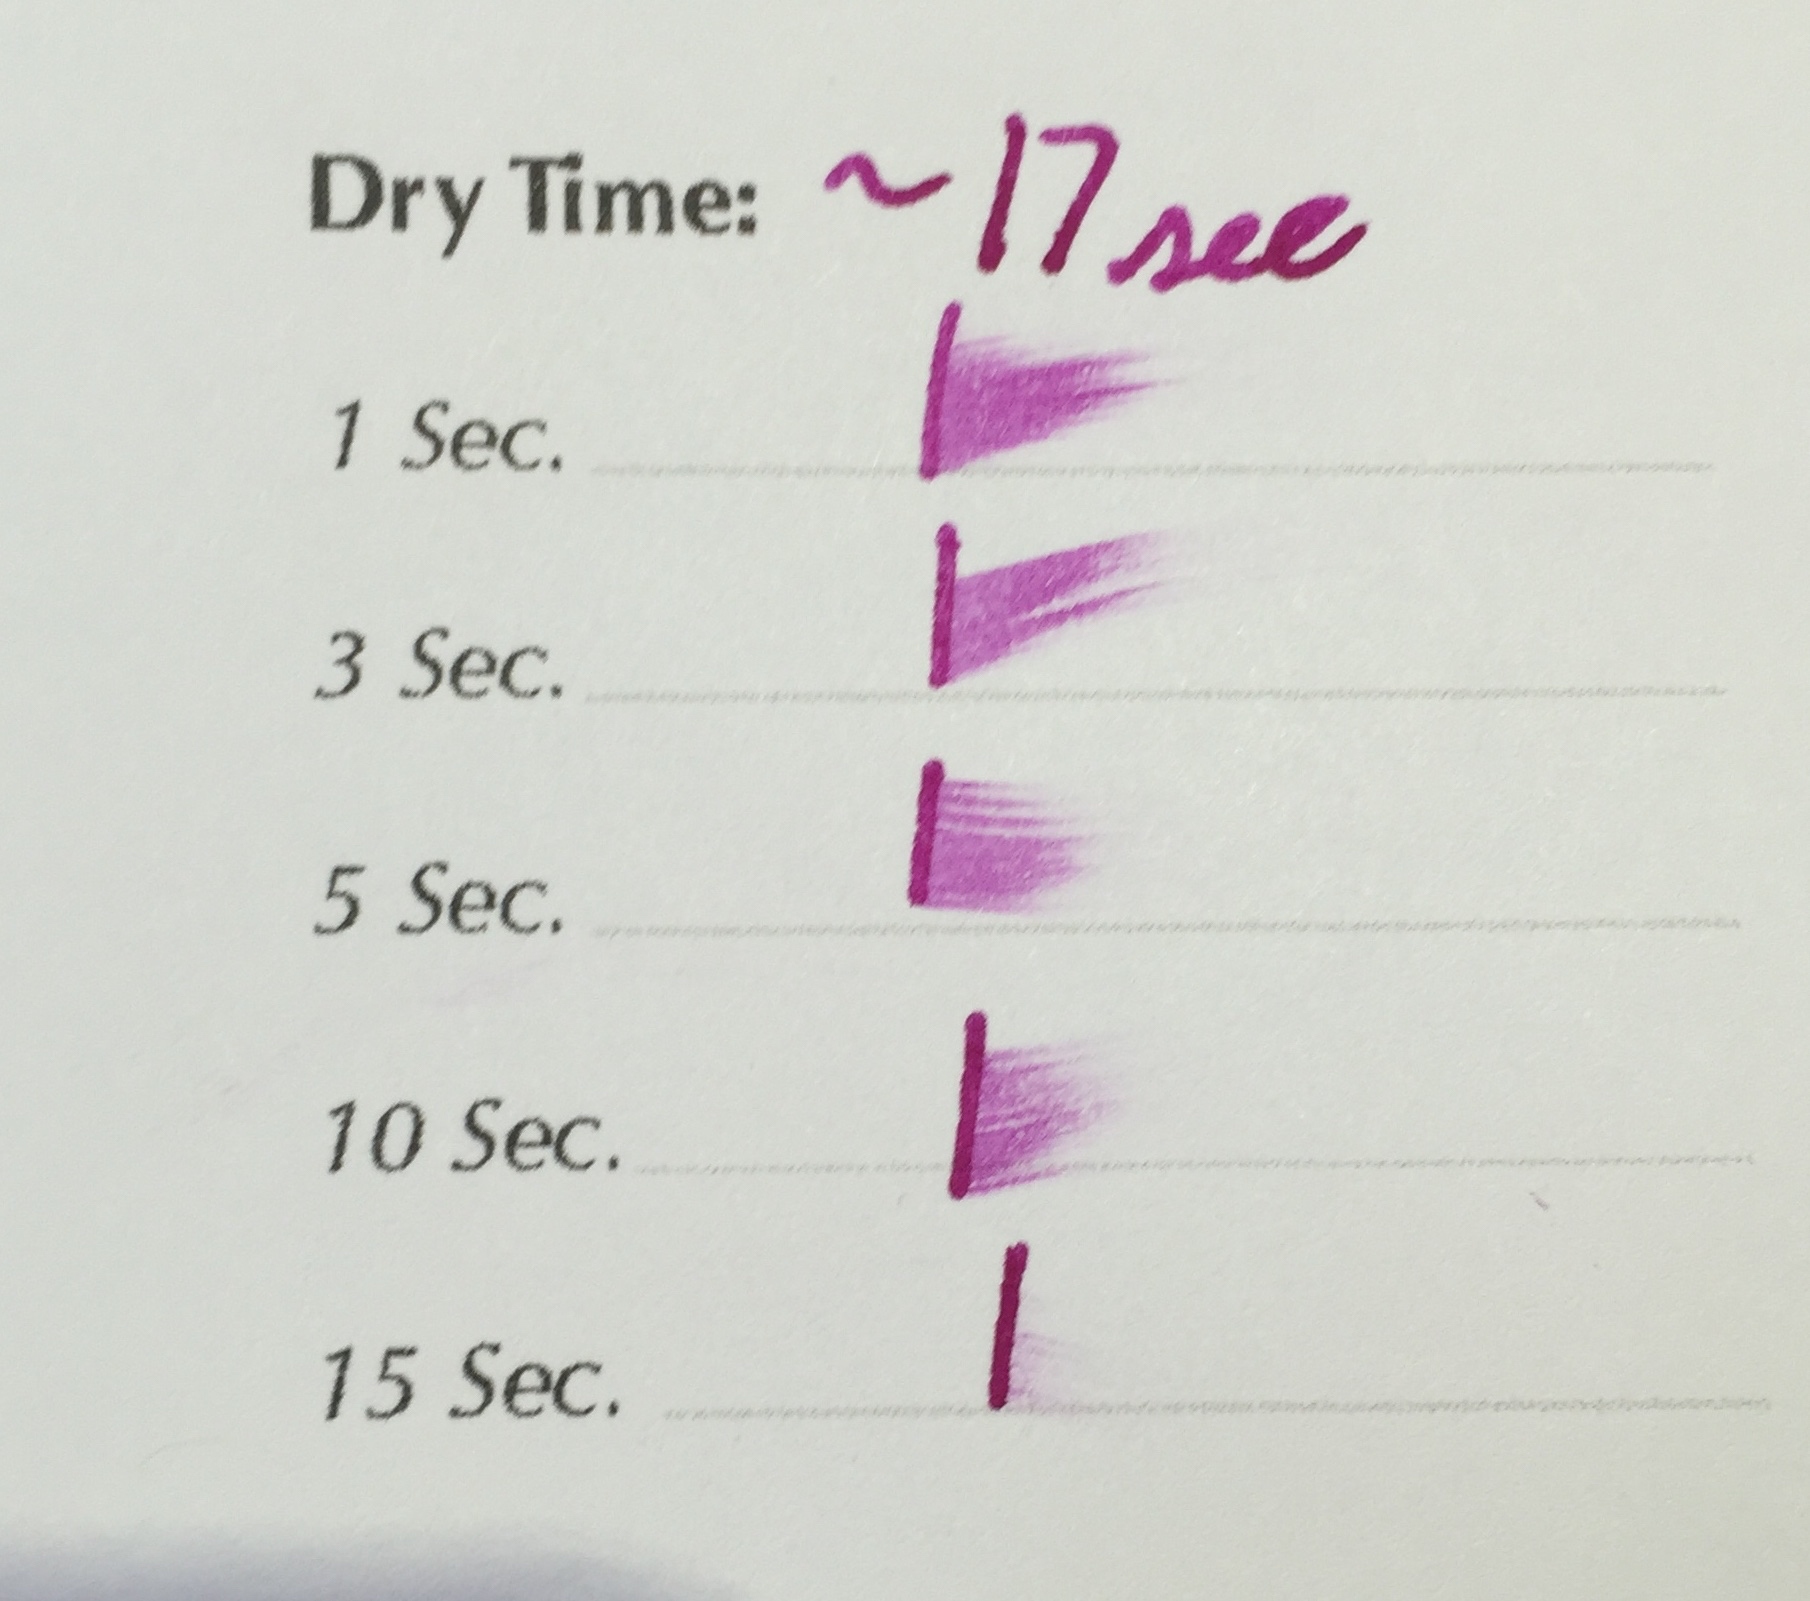 Dry Time: ~17 sec
1 Sec.
3 Sec.
5 Sec.
10 Sec.
15 Sec.